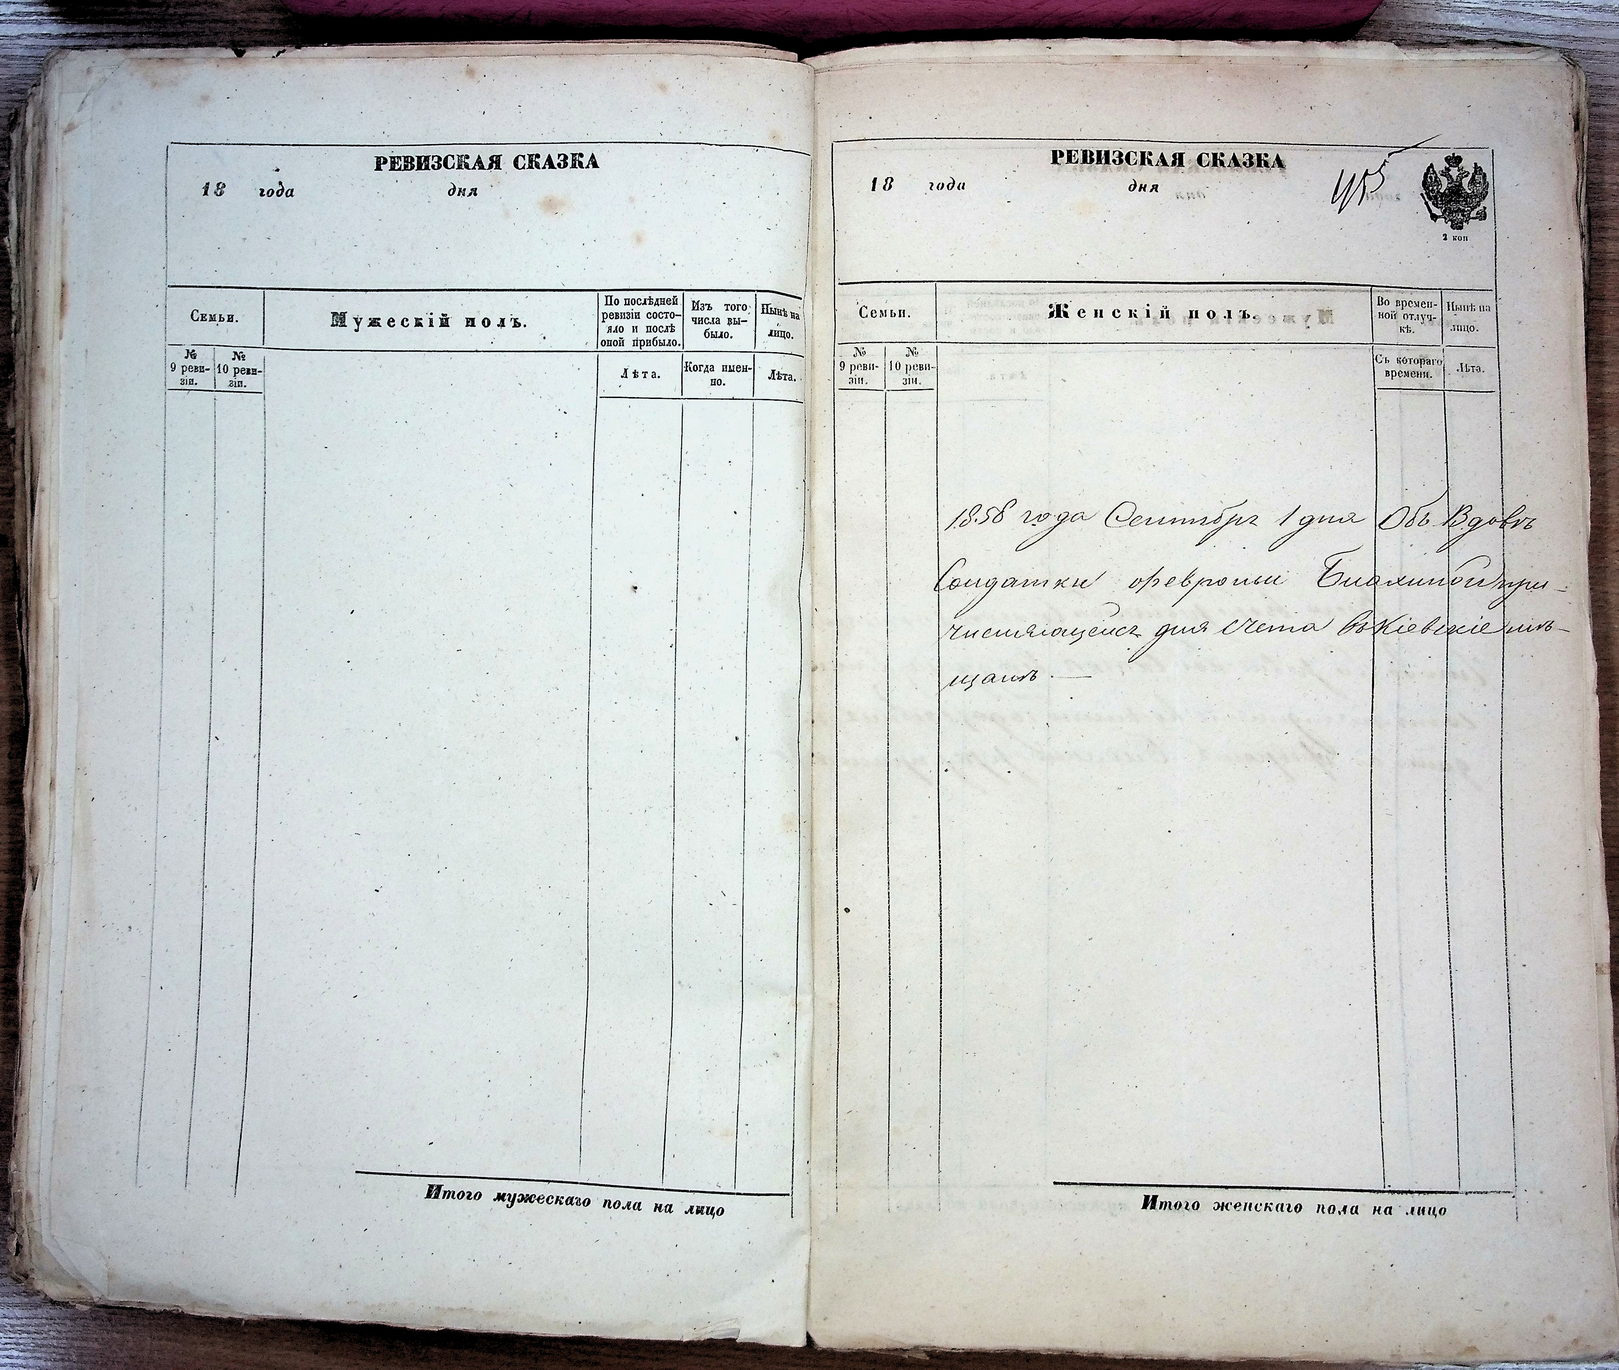 РЕВИЗСКАЯ СКАЗКА
18 года дня
Семьи.
Мужескій полъ.
По послѣдней ревизіи состо-
яло и послѣ
оной прибыло.
Изъ того
числа вы-
было.
Нынѣ на
лицо.
№
9 реви-
зіи.
№
10 реви-
зіи.
Лѣта.
Когда имен-
но.
Лѣта.
Итого мужескаго пола на лицо
РЕВИЗСКАЯ СКАЗКА
18 года дня
455
2 коп
Семьи.
Женскій полъ.
Во времен-
ной отлуч-
кѣ.
Нынѣ на
лицо.
№
9 реви-
зіи.
№
10 реви-
зіи.
Съ котораго
времени.
Лѣта.
1858 года Сентября 1 дня Объ Вдовѣ
Солдатки Февроньи при-
числяющейся для счета въ Кіевскіе мѣ-
щанѣ. —
Итого женскаго пола на лицо